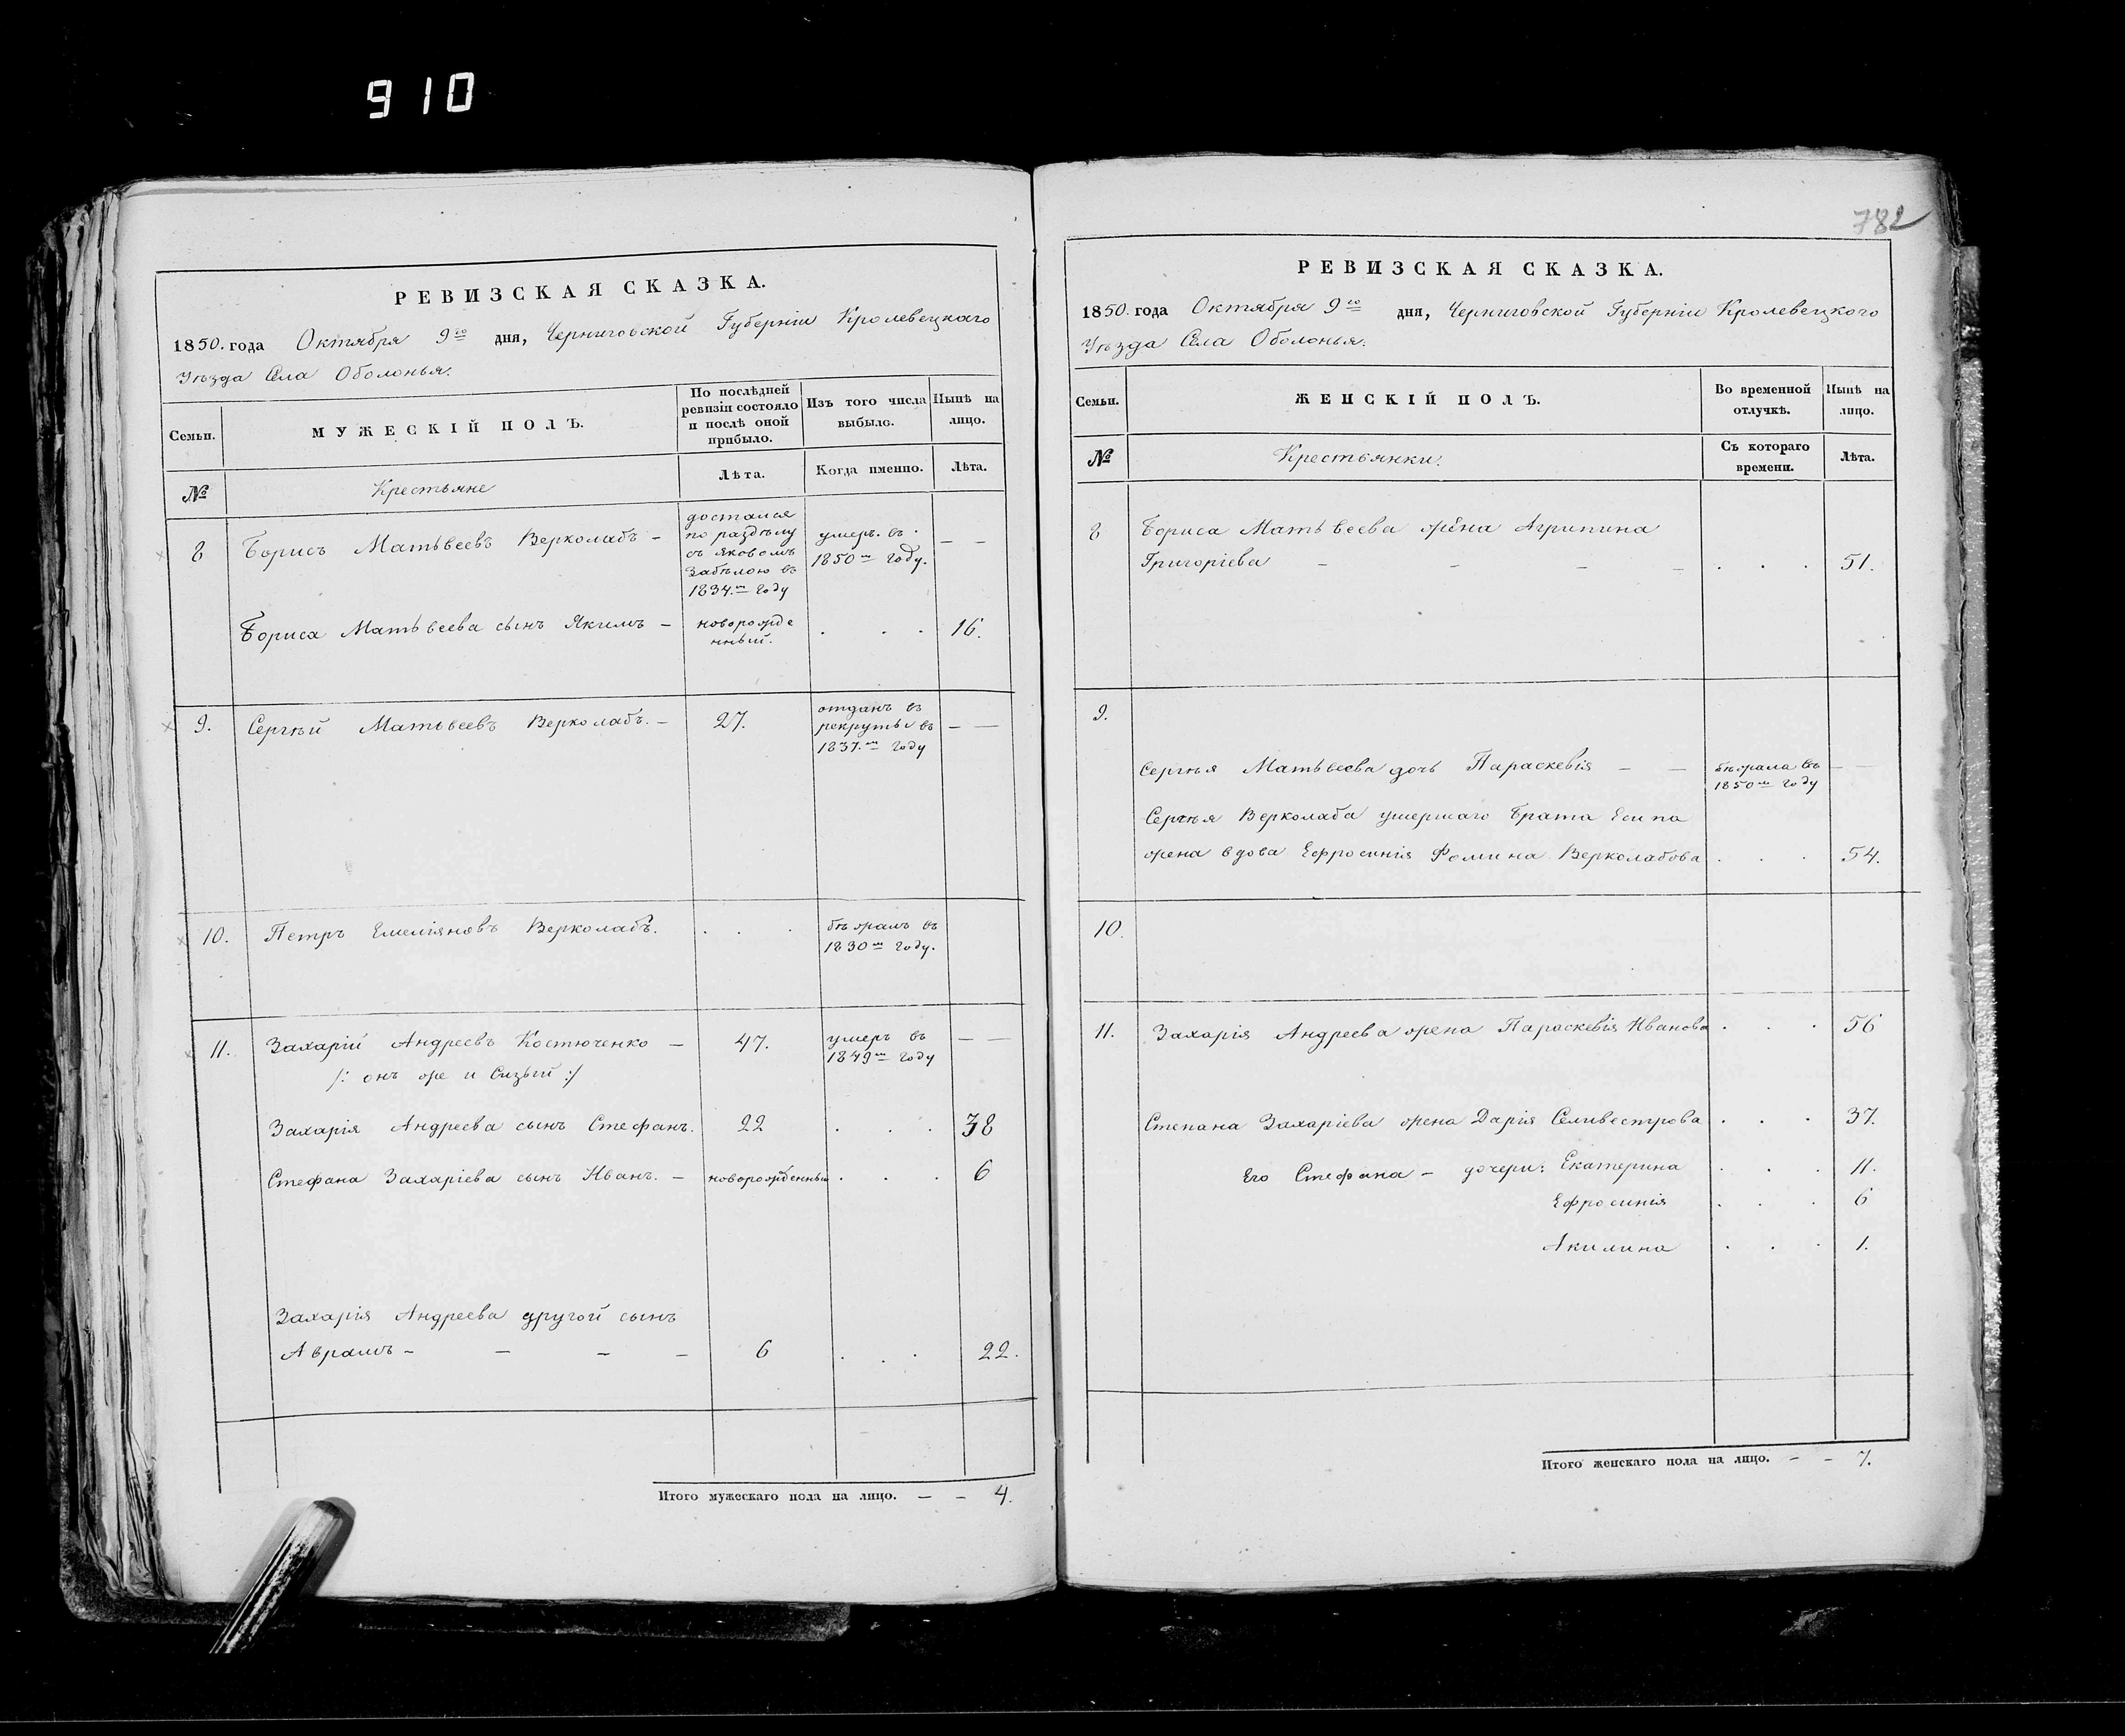 910
782
РЕВИЗСКАЯ СКАЗКА.
1850. года Октября 9го дня, Черниговской Губерніи Кролевецкаго
Уѣзда Села Оболонья.
Семьи.
МУЖЕСКІЙ ПОЛЪ.
По послѣдней
ревизіи состояло
и послѣ оной
прибыло.
Изъ того числа
выбыло.
Нынѣ на
лицо.
№
Крестьяне
Лѣта.
Когда именно.
Лѣта.
8
Борисъ Матвѣевъ Верколабъ —
достался
по раздѣлу
съ Яковомъ
Забѣлою въ
1834.м году
умеръ. въ
1850м году.
— —
Бориса Матвѣева сынъ Якимъ —
новорожде
нный.
. . .
16.
9.
Сергѣй Матвѣевъ Верколабъ. —
27.
отданъ въ
рекруты въ
1837.м году
— —
10.
Петръ Емеліяновъ Верколабъ.
. . .
бѣжалъ въ
1830м году.
11.
Захарій Андреевъ Костюченко —
/: онъ же и Сизый :/
47.
умеръ въ
1849м году
— —
Захарія Андреева сынъ Стефанъ.
22
. . .
38
Стефана Захаріева сынъ Иванъ. —
новорожденный
. . .
6
Захарія Андреева другой сынъ
Аврамъ — — — —
6
. . .
22.
Итого мужескаго пола на лицо. — — 4.
РЕВИЗСКАЯ СКАЗКА.
1850. года Октября 9го дня, Черниговской Губерніи Кролевецкого
Уѣзда Села Оболонья.
Семьи.
ЖЕНСКІЙ ПОЛЪ.
Во временной
отлучкѣ.
Нынѣ на
лицо.
№
Крестьянки.
Съ котораго
времени.
Лѣта.
8
Бориса Матвѣева жена Агрипина
Григоріева — — — —
. . .
51.
9.
Сергѣя Матвѣева дочь Параскевія — —
бѣжала въ
1850м году
— —
Сергѣя Верколаба умершаго Брата Есипа
жена вдова Ефросинія Фомина Верколабова
. . .
54.
10.
11.
Захарія Андреева жена Параскевія Иванова
. . .
56
Степана Захаріева жена Дарія Селивестрова
. . .
37.
Его Стефана — дочери: Екатерина
. . .
11.
Ефросинія
. . .
6
Акилина
. . .
1.
Итого женскаго пола на лицо. — — 7.